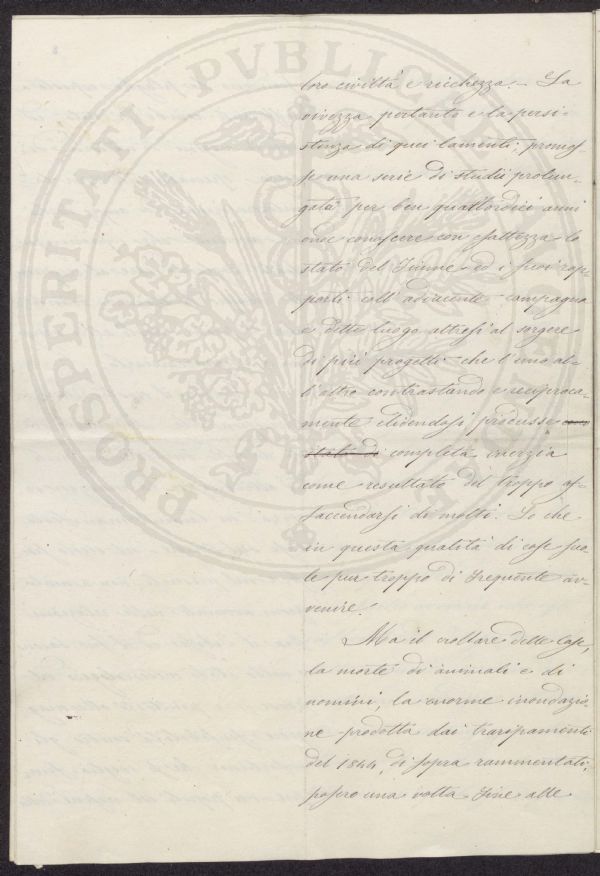 PROSPERITATI PVBLICAE
loro civiltà e ricchezza. – La
vivezza pertanto e la persi-
stenza di quei lamenti, promos-
se una serie di studii prolun-
gati per ben quattordici anni
onde conoscere con esattezza lo
stato del Fiume ed i suoi rap-
porti coll' adiacente campagna
e dette luogo altresì al sorgere
di più progetti che l'uno al-
l'altro contrastando e reciproca-
mente elidendosi produsse
stato di completa inerzia
come resultato del troppo af-
faccendarsi di molti. Lo che
in questa qualità di cose suo-
le pur troppo di frequente av-
venire.
Ma il crollare delle Case,
la morte di animali e di
uomini, la enorme inondazio-
ne prodotta dai traripamenti
del 1844, di sopra rammentati,
posero una volta fine alle